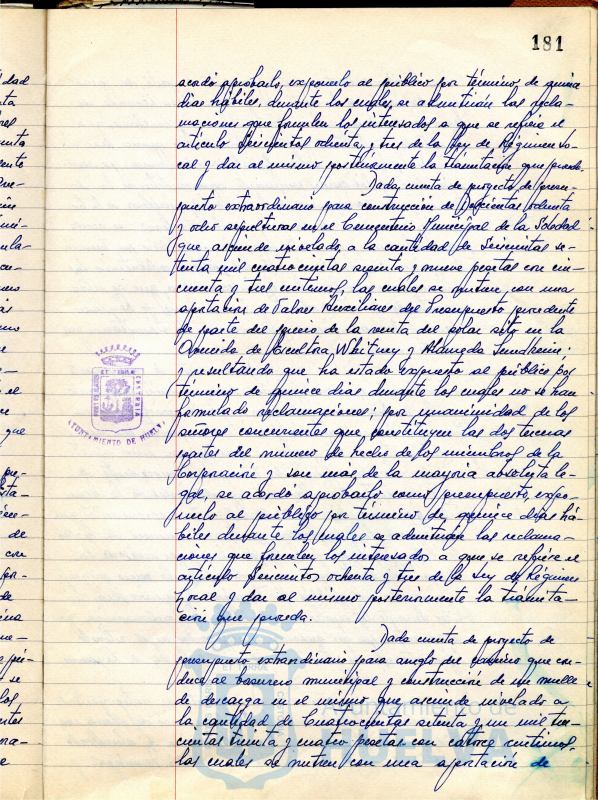 181
acordó aprobarlo, exponerlo al público por término de quince
días hábiles, durante los cuales, se admitirán las recla-
maciones que formulen los interesados a que se refiere el
artículo seiscientos ochenta y tres de la Ley de Régimen Lo-
cal y dar al mismo posteriormente la tramitación que proceda.
Dada cuenta de proyecto de presu-
puesto extraordinario para construcción de Doscientas ochenta
y ocho sepulturas en el Cementerio Municipal de la Soledad
que asciende nivelado, a la cantidad de Seiscientas se-
tenta mil cuatrocientas sesenta y nueve pesetas con cin-
cuenta y tres centimos, las cuales se nutren, con una
aportación de Valores Auxiliares del Presupuesto procedente
de parte del precio de la venta del solar sito en la
Avenida de Escultora Whitney y Alameda Sundheim;
y resultando que ha estado expuesto al público por
término de quince días durante los cuales no se han
formulado reclamaciones; por unanimidad de los
señores concurrentes que constituyen las dos terceras
partes del número de hecho de los miembros de la
Corporación y son más de la mayoría absoluta le-
gal, se acordó aprobarlo como presupuesto, expo-
nerlo al público por término de quince días há-
biles durante los cuales se admitirán las reclama-
ciones que formulen los interesados a que se refiere el
artículo Seiscientos ochenta y tres de la Ley de Régimen
Local y dar al mismo posteriormente la tramita-
ción que proceda.
Dada cuenta de proyecto de
presupuesto extraordinario para arreglo del camino que con-
duce al basurero municipal y construcción de un muelle
de descarga en el mismo que asciende nivelado a
la cantidad de Cuatrocientas setenta y un mil tres-
cientas treinta y cuatro pesetas con catorce centimos,
las cuales se nutren con una aportación de
AYUNTAMIENTO DE HUELVA
Ayuntamiento de
HUELVA